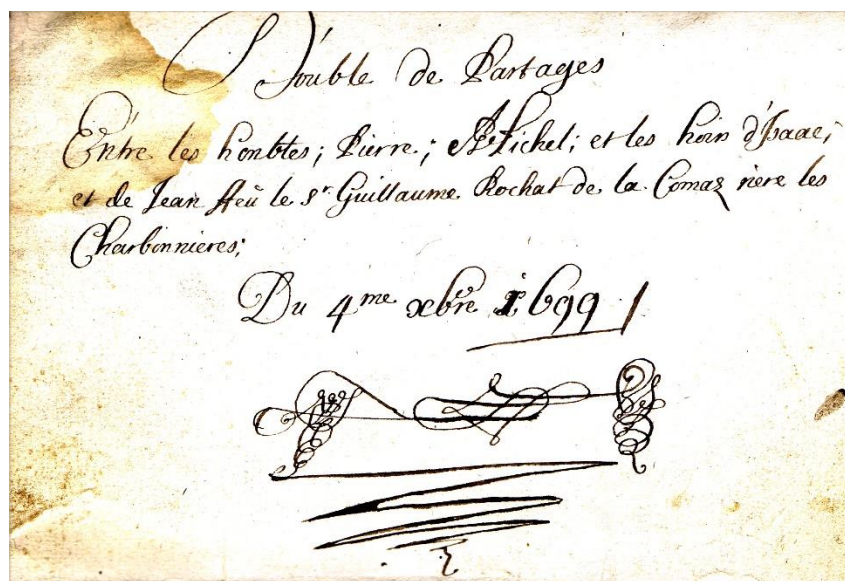 Double de Partages
Entre les honbles; Pierre; Michel; et les hoirs d'Isaac;
et de Jean ffeu le sr Guillaume Rochat de la Comaz riere les
Charbonnieres;
Du 4me xbre 1699